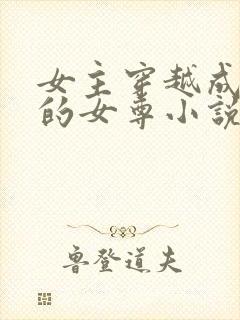 女主穿越成
的女尊小说
鲁登道夫